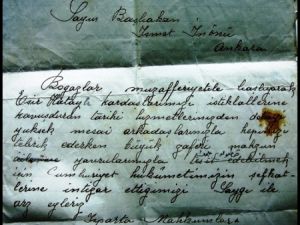 Sayın Başbakan
İsmet İnönü
Ankara
Boğazlar muzafferiyetile başlıyarak
Eür Hatayle kardaşlarımızı istiklallerine
kavuşduran tarihi hizmetlerinizden dolayı
yüksek mesai arkadaşlarınızla hepinizi
tebrik ederken büyük zaferi mahzun
yavrularımızla
için Cumhuriyet hükümetimizin şefkat
lerine intizar ettiğimizi Saygı ile
arz eyleriz
Isparta Mahkumları